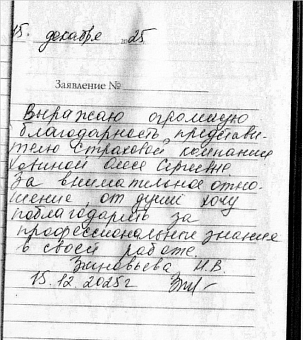 15. декабря 2025.
Заявление №
Выражаю огромную
благодарность представи-
телю страховой компании
Олесе Сергеевне
за внимательное отно-
шение, от души хочу
поблагодарить за
профессиональные знания
в своей работе.
Зиновьева И.В.
15.12.2025г